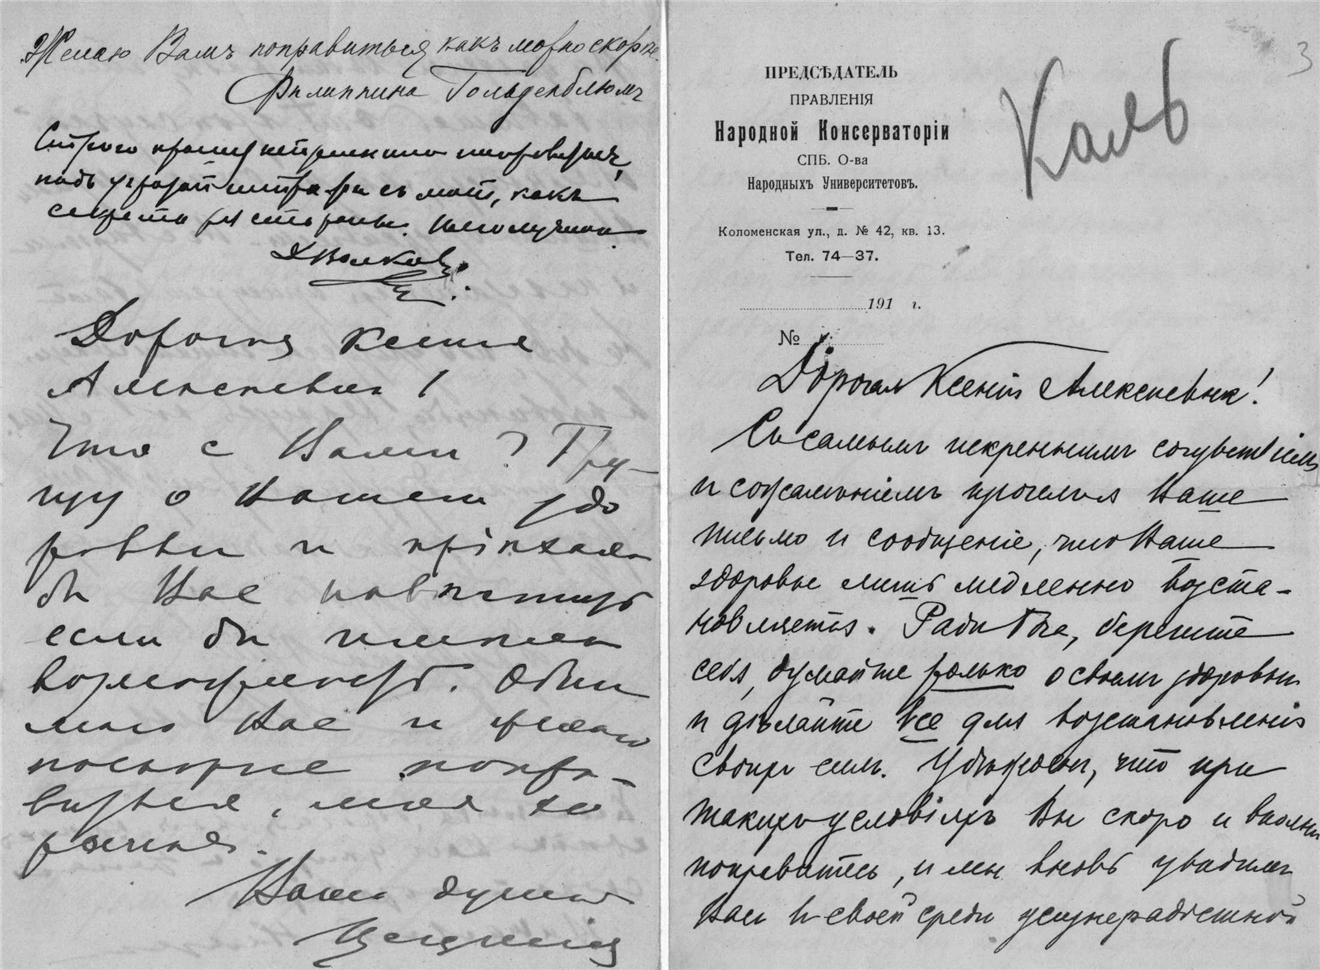 Желаю Вамъ поправиться какъ можно скорѣе.
Филиппина Гольденблюмъ
Строго
подъ угрозой штрафа съ мот, какъ
Волковъ
Дорогая Ксенія
Алексеевна!
Что с Вами? Гру-
щу о Вашем здо
ровьи и пріехала
бы Вас навестить
если бы имела
возможность. Обни
маю Вас и желаю
поскорее попра-
виться, моя хо
рошая.
Ваша душой
3
Каль
ПРЕДСѢДАТЕЛЬ
ПРАВЛЕНІЯ
Народной Консерваторіи
СПБ. О-ва
Народныхъ Университетовъ.
Коломенская ул., д. № 42, кв. 13.
Тел. 74—37.
191 г.
№
Дорогая Ксенія Алексѣевна!
Съ самымъ искреннимъ сочувствіемъ
и сожалѣніемъ прочелъ Ваше
письмо и сообщеніе, что Ваше
здоровье лишь медленно возста-
новляется. Ради Бога, берегите
себя, думайте только о своемъ здоровьи
и дѣлайте все для возстановленія
своихъ силъ. Убѣжденъ, что при
такихъ условіяхъ Вы скоро и вполнѣ
поправитесь, и мы вновь увидимъ
Васъ въ своей средѣ